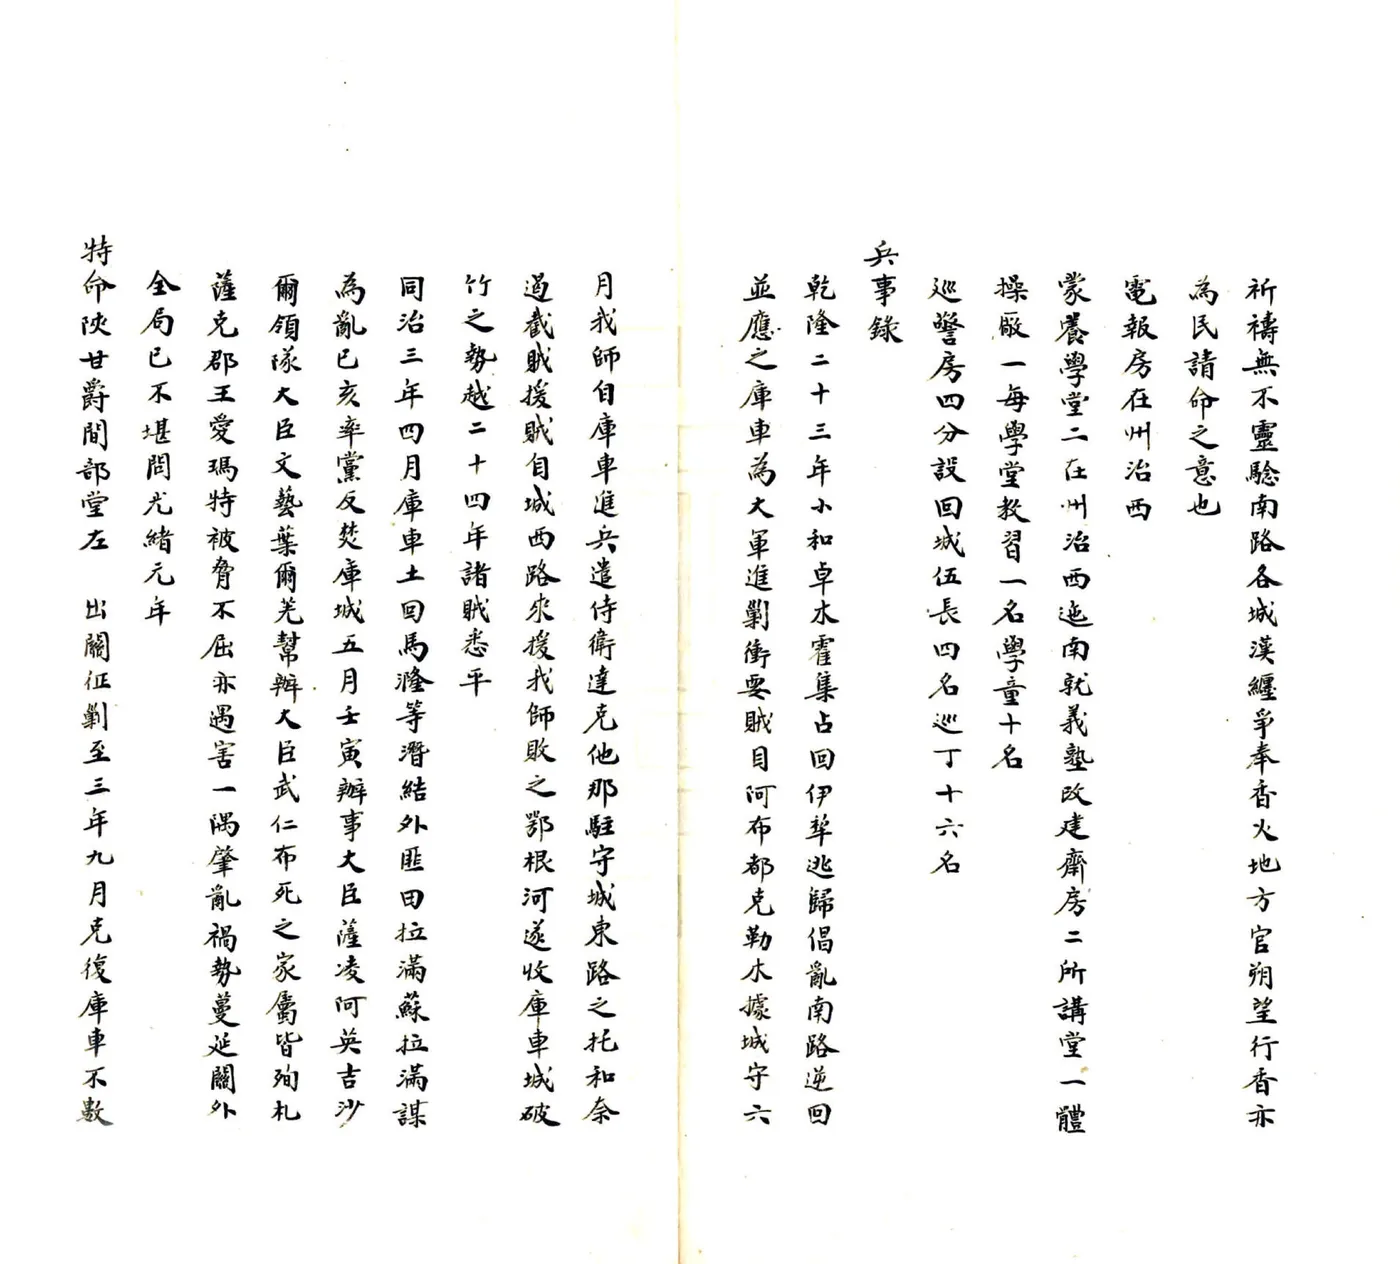 祈禱無不靈驗南路各城漢纏爭奉香火地方官朔望行香亦
為民請命之意也
電報房在州治西
蒙養學堂二在州治西迤南就義塾改建齋房二所講堂一體
操厰一每學堂教習一名學童十名
巡警房四分設回城伍長四名巡丁十六名
兵事錄
乾隆二十三年小和卓木霍集占回伊犂逃歸倡亂南路逆回
並應之庫車為大軍進剿衝要賊目阿布都克勒木據城守六
月我師自庫車進兵遣侍衛達克他那駐守城東路之托和奈
過截賊援賊自城西路來援我師敗之鄂根河遂收庫車城破
竹之勢越二十四年諸賊悉平
同治三年四月庫車土回馬漋等潛結外匪田拉滿蘇拉滿謀
為亂已亥率黨反焚庫城五月壬寅辦事大臣薩凌阿英吉沙
爾領隊大臣文藝葉爾羌幫辦大臣武仁布死之家屬皆殉札
薩克郡王愛瑪特被脅不屈亦遇害一隅肇亂禍勢蔓延關外
全局已不堪問光緒元年
特命陝甘爵閣部堂左　出關征剿至三年九月克復庫車不數